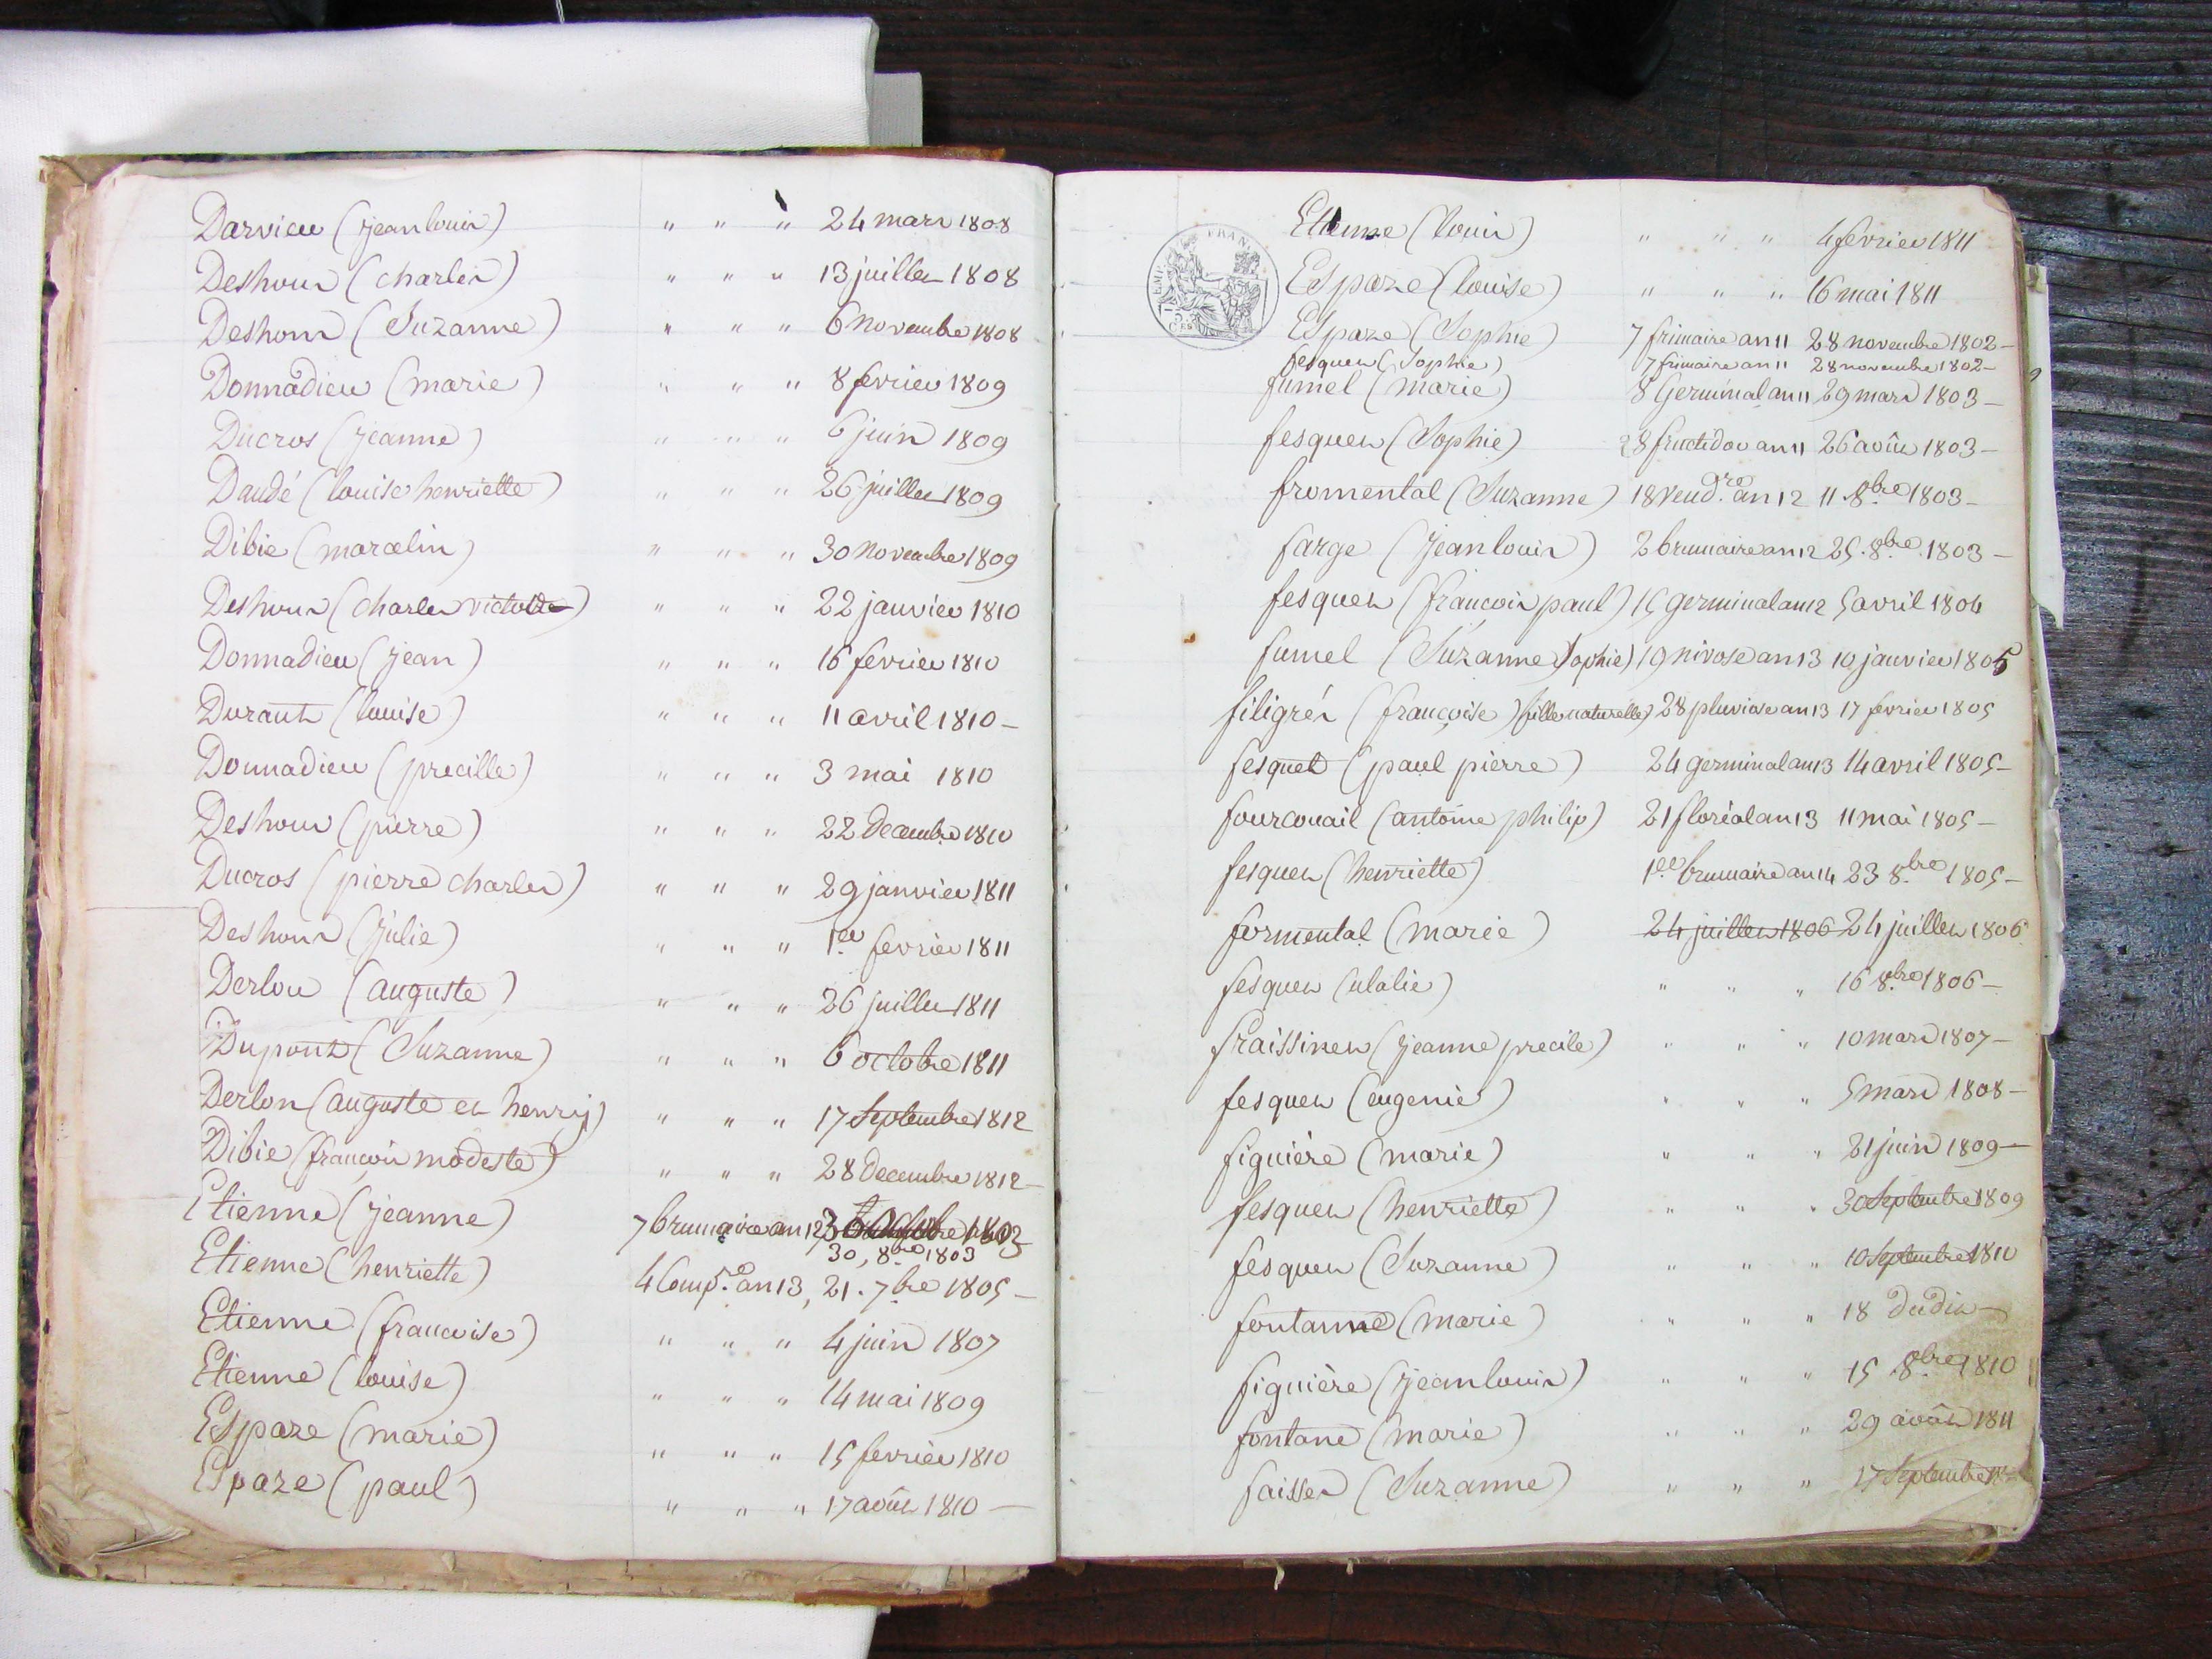 Darvieu (jean louis) " " " 24 mars 1808
Deshours (charles) " " " 13 juillet 1808
Deshours (Suzanne) " " " 6 Novembre 1808
Donnadieu (marie) " " " 8 fevrier 1809
Ducros (jeanne) " " " 6 juin 1809
Daudé (louise henriette) " " " 26 juillet 1809
Dibie (marcelin) " " " 30 Novembre 1809
Deshours (charles victoire) " " " 22 janvier 1810
Donnadieu (jean) " " " 16 fevrier 1810
Durant (louise) " " " 11 avril 1810 -
Donnadieu (precille) " " " 3 mai 1810
Deshours (pierre) " " " 22 Decembre 1810
Ducros (pierre charles) " " " 29 janvier 1811
Deshours (julie) " " " 1er fevrier 1811
Derlon (auguste) " " " 26 juillet 1811
Dupont (Suzanne) " " " 6 octobre 1811
Derlon (auguste et henry) " " " 17 Septembre 1812
Dibie (françois modeste) " " " 28 Decembre 1812 -
Etienne (jeanne) 7 brumaire an 12
30, 8bre 1803
Etienne (henriette) 4 Comp.re an 13, 21. 7bre 1805 -
Etienne (francoise) " " " 4 juin 1807
Etienne (louise) " " " 14 mai 1809
Espaze (marie) " " " 15 fevrier 1810
Espaze (paul) " " " 17 août 1810 -
EMP. FRAN.
75
CES
Etienne (louis) " " " 4 fevrier 1811
Espaze (louise) " " " 16 mai 1811
Espaze (Sophie) 7 frimaire an 11 28 novembre 1802 -
fesquet (Sophie) 7 frimaire an 11 28 novembre 1802 -
fumel (marie) 8 Germinal an 11 29 mars 1803 -
fesquet (Sophie) 8 fructidor an 11 26 août 1803 -
fromental (Suzanne) 18 vend.re an 12 11 8bre 1803 -
farge (jean louis) 2 brumaire an 12 25. 8bre 1803 -
fesquet (francois paul) 15 germinal an 12 5 avril 1804
fumel (Suzanne Sophie) 19 nivose an 13 10 janvier 1805
filigrés (françoise) fille naturelle) 28 pluviose an 13 17 fevrier 1805
fesquet (paul pierre) 24 germinal an 13 14 avril 1805 -
fourcouail (antoine philip) 21 floréal an 13 11 mai 1805 -
fesquet (henriette) 1er brumaire an 14 23 8bre 1805 -
formental (marie) 24 juillet 1806 24 juillet 1806
fesquet (ulalie) " " " 16 8bre 1806 -
fraissinet (jeanne precile) " " " 10 mars 1807 -
fesquet (eugenie) " " " 5 mars 1808 -
figuière (marie) " " " 21 juin 1809 -
fesquet (henriette) " " " 30 Septembre 1809
fesquet (Suzanne) " " " 10 Septembre 1810
fontanne (marie) " " " 18 dudit -
figuière (jean louis) " " " 15 8bre 1810
fontane (marie) " " " 29 août 1811
faisses (Suzanne) " " " 17 Septembre